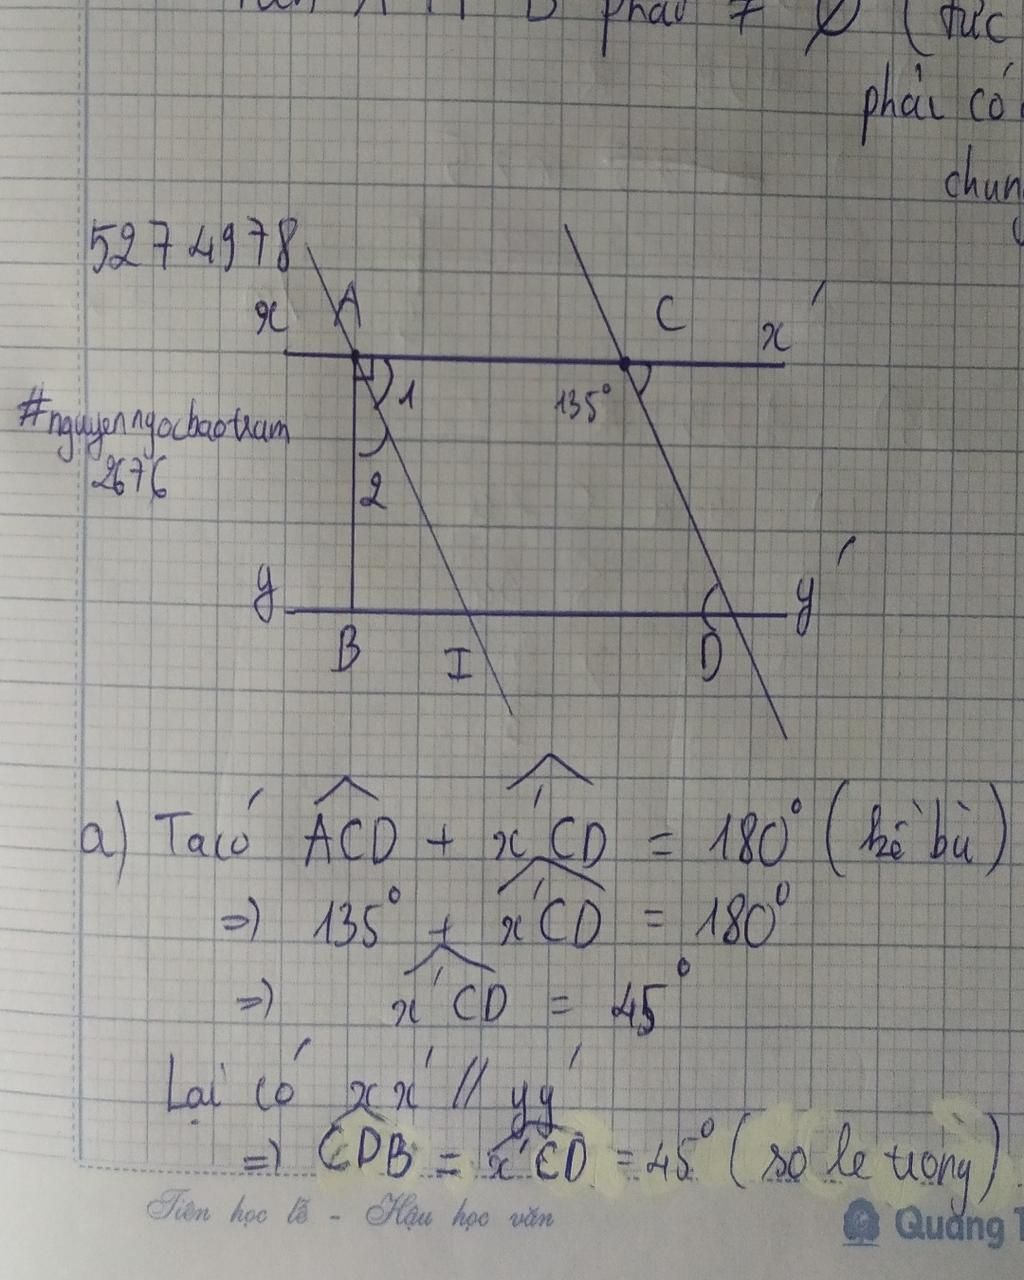 phải ≠ Ø ( tức
phải có
chung
5274978
x A C x'
1 135°
#nguyenngocbaotram
2676
2
y y'
B I D
a) Ta có ACD + x'CD = 180° ( kề bù )
=> 135° + x'CD = 180°
=> x'CD = 45°
Lại có xx' // yy'
=> CDB = x'CD = 45° ( so le trong )
Tiên học lễ - Hậu học văn
Quang